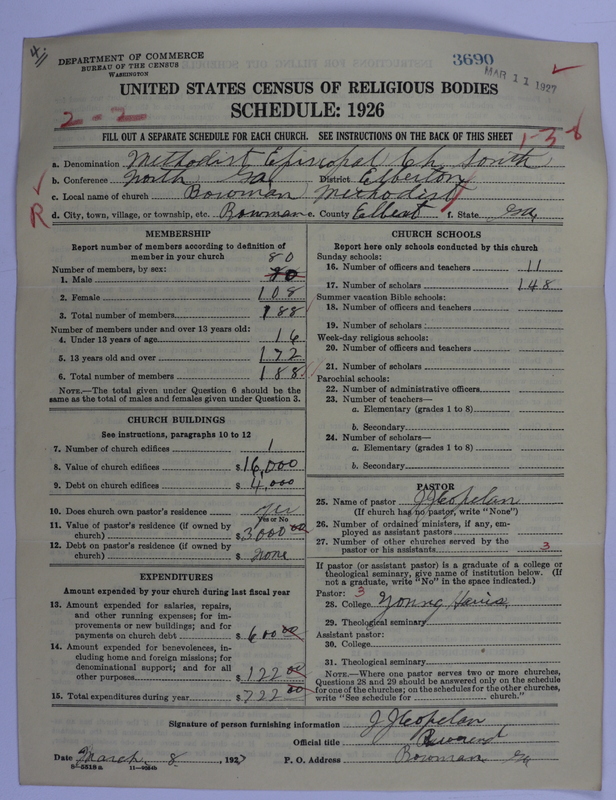 4
DEPARTMENT OF COMMERCE
BUREAU OF THE CENSUS
WASHINGTON
3690
MAR 11 1927
UNITED STATES CENSUS OF RELIGIOUS BODIES
SCHEDULE: 1926
2-2
1-38
FILL OUT A SEPARATE SCHEDULE FOR EACH CHURCH. SEE INSTRUCTIONS ON THE BACK OF THIS SHEET
a. Denomination Methodist Episcopal Ch. South
b. Conference North Ga District Elberton
c. Local name of church Bowman Methodist
R
d. City, town, village, or township, etc. Bowman e. County Elbert f. State Ga
MEMBERSHIP
Report number of members according to definition of
member in your church
80
Number of members, by sex:
1. Male 80
2. Female 108
3. Total number of members 188
Number of members under and over 13 years old:
4. Under 13 years of age 16
5. 13 years old and over 172
6. Total number of members 188
NOTE.—The total given under Question 6 should be the
same as the total of males and females given under Question 3.
CHURCH BUILDINGS
See instructions, paragraphs 10 to 12
7. Number of church edifices 1
8. Value of church edifices $16,000
9. Debt on church edifices $4,000
10. Does church own pastor's residence yes
Yes or No
11. Value of pastor's residence (if owned by
church) $3,000 00
12. Debt on pastor's residence (if owned by
church) $ none
EXPENDITURES
Amount expended by your church during last fiscal year
13. Amount expended for salaries, repairs,
and other running expenses; for im-
provements or new buildings; and for
payments on church debt $600 00
14. Amount expended for benevolences, in-
cluding home and foreign missions; for
denominational support; and for all
other purposes $122 00
15. Total expenditures during year $722 00
CHURCH SCHOOLS
Report here only schools conducted by this church
Sunday schools:
16. Number of officers and teachers 11
17. Number of scholars 148
Summer vacation Bible schools:
18. Number of officers and teachers
19. Number of scholars
Week-day religious schools:
20. Number of officers and teachers
21. Number of scholars
Parochial schools:
22. Number of administrative officers
23. Number of teachers—
a. Elementary (grades 1 to 8)
b. Secondary
24. Number of scholars—
a. Elementary (grades 1 to 8)
b. Secondary
PASTOR
25. Name of pastor J J Copelan
(If church has no pastor, write "None")
26. Number of ordained ministers, if any, em-
ployed as assistant pastors
27. Number of other churches served by the
pastor or his assistants 3
If pastor (or assistant pastor) is a graduate of a college or
theological seminary, give name of institution below. (If
not a graduate, write "No" in the space indicated.)
Pastor: 3
28. College Young Harris
29. Theological seminary
Assistant pastor:
30. College
31. Theological seminary
NOTE.—Where one pastor serves two or more churches,
Questions 28 and 29 should be answered only on the schedule
for one of the churches; on the schedules for the other churches,
write "See schedule for church."
Signature of person furnishing information J J Copelan
Official title Reverend
Date March 8, 1927 P. O. Address Bowman Ga
8—5518a